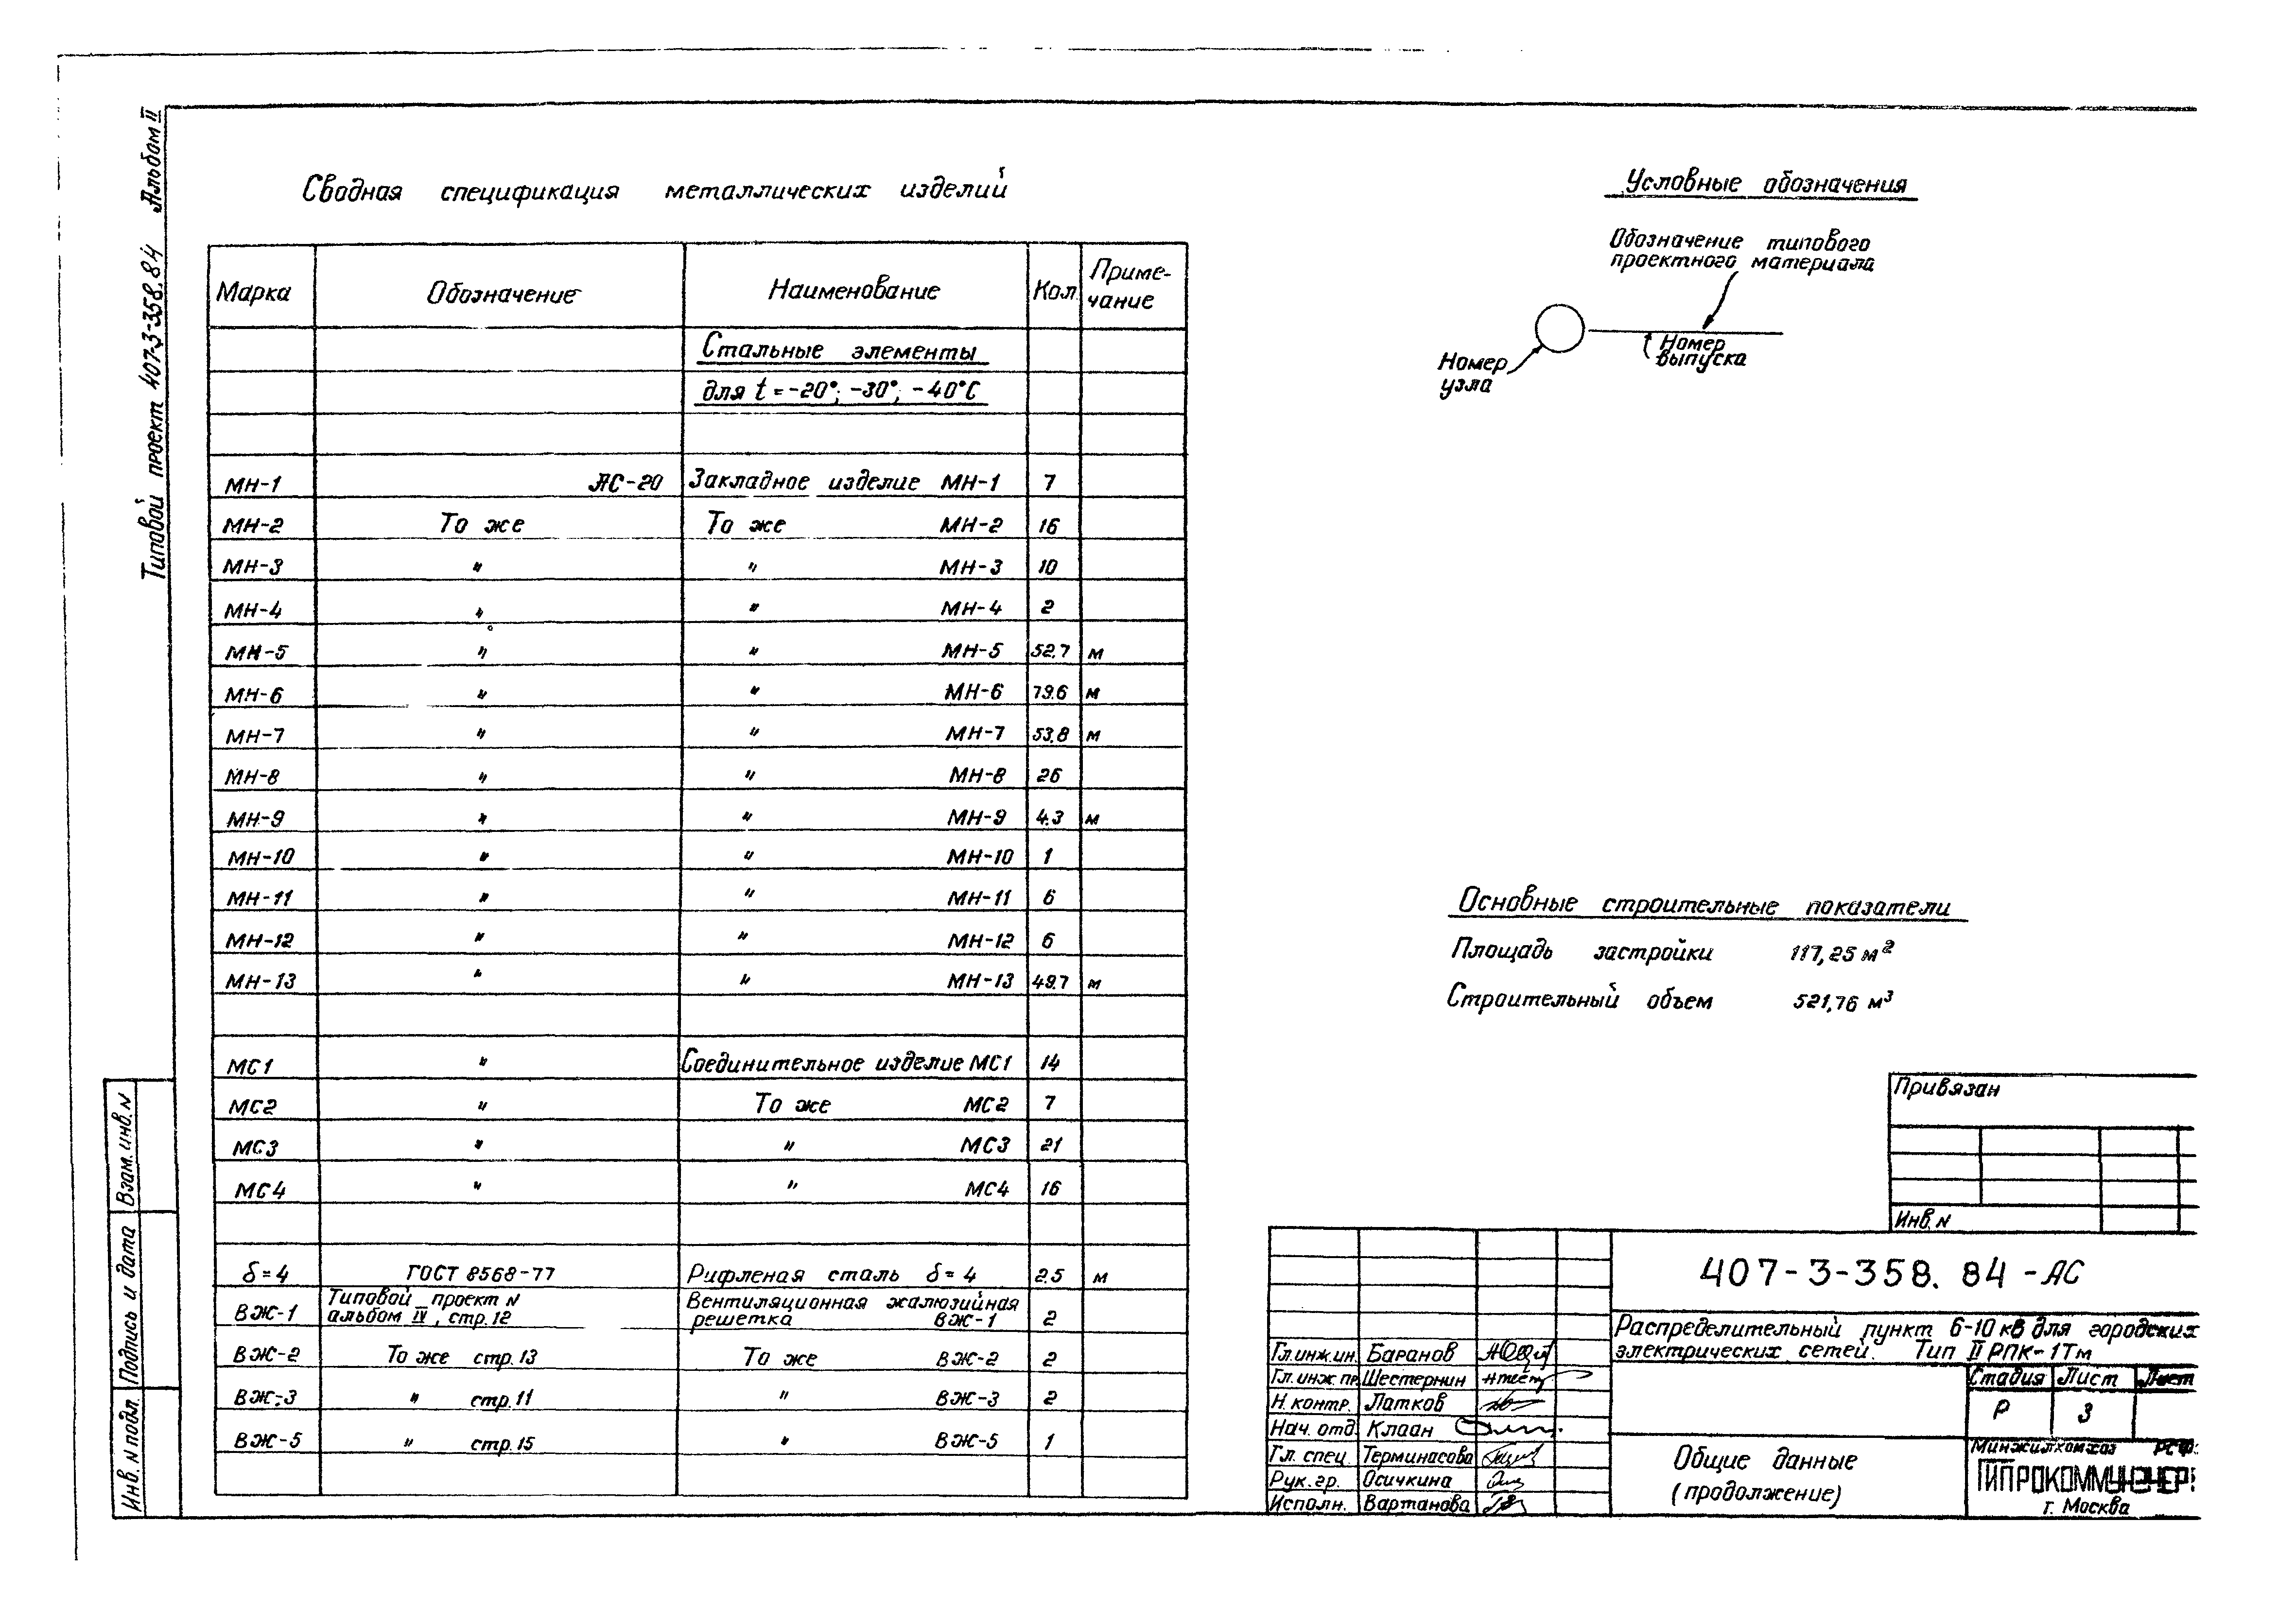 Типовой проект 407-3-358.84 Альбом II
Сводная спецификация металлических изделий
Марка Обозначение Наименование Кол. Приме-
чание
Стальные элементы
для t = -20°; -30°; -40°С
МН-1 АС-20 Закладное изделие МН-1 7
МН-2 То же То же МН-2 16
МН-3 " " МН-3 10
МН-4 " " МН-4 2
МН-5 " " МН-5 52.7 м
МН-6 " " МН-6 79.6 м
МН-7 " " МН-7 53.8 м
МН-8 " " МН-8 26
МН-9 " " МН-9 4.3 м
МН-10 " " МН-10 1
МН-11 " " МН-11 6
МН-12 " " МН-12 6
МН-13 " " МН-13 49.7 м
МС1 " Соединительное изделие МС1 14
МС2 " То же МС2 7
МС3 " " МС3 21
МС4 " " МС4 16
δ=4 ГОСТ 8568-77 Рифленая сталь δ=4 2.5 м
ВЖ-1 Типовой проект N
альбом IV, стр.12 Вентиляционная жалюзийная
решетка ВЖ-1 2
ВЖ-2 То же стр.13 То же ВЖ-2 2
ВЖ-3 " стр.11 " ВЖ-3 2
ВЖ-5 " стр.15 " ВЖ-5 1
Условные обозначения
Обозначение типового
проектного материала
Номер
выпуска
Номер
узла
Основные строительные показатели
Площадь застройки 117,25 м²
Строительный объем 521,76 м³
Привязан
Инв. N
407-3-358.84-АС
Распределительный пункт 6-10 кв для городских
электрических сетей. Тип II РПК-1Тм
Гл.инж.ин. Баранов
Гл. инж. пр. Шестернин
Н. контр. Латков
Нач. отд. Клаан
Гл. спец. Терминасова
Рук. гр. Осичкина
Исполн. Вартанова
Стадия Лист Лист
Р 3
Общие данные
(продолжение)
Минжилкомхоз РСФ
ГИПРОКОММУНЭНЕР
г. Москва
Взам. инв. N
Подпись и дата
Инв. N подл.